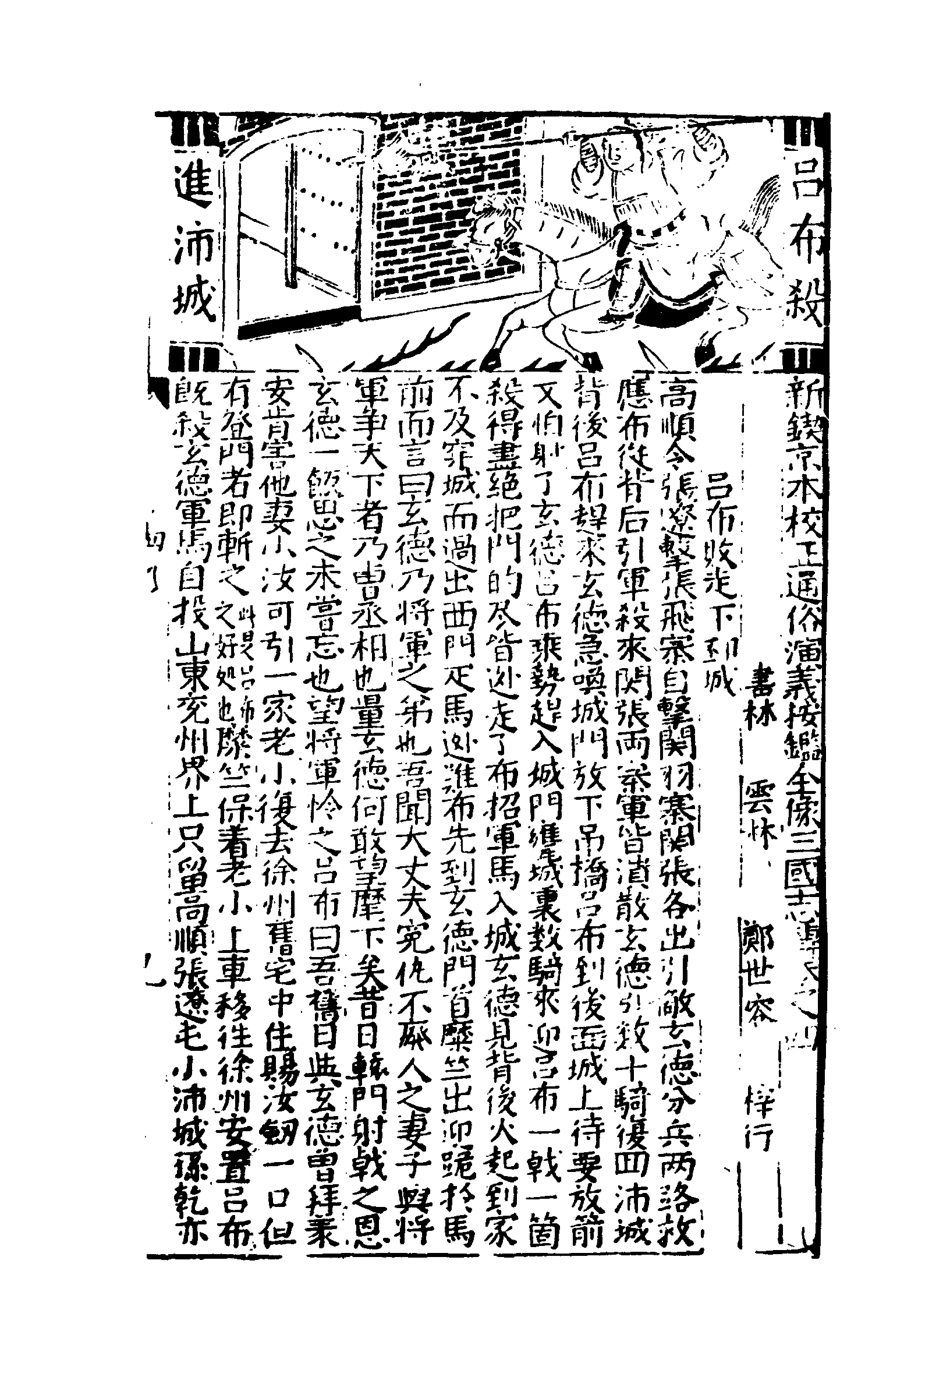 呂布殺
進沛城
新鍥京本校正通俗演義按鑑全像三國志傳卷之四
書林 雲林 鄭世容 梓行
呂布敗走下邳城
高順令張遼擊張飛寨自擊関羽寨関張各出引敵玄德分兵两路救
應布從背后引軍殺來関張両寨軍皆潰散玄德引数十騎復回沛城
背後呂布趕來玄德急喚城門放下吊橋呂布到後面城上待要放箭
又怕射了玄德呂布乗勢趕入城門進城裏数騎來迎呂布一戟一箇
殺得盡絕把門的尽皆迯走了布招軍馬入城玄德見背後火起到家
不及穿城而過出西門疋馬迯進布先到玄德門首糜竺出迎跪扵馬
前而言曰玄德乃将軍之弟也吾聞大丈夫冤仇不廢人之妻子與将
軍争天下者乃曹丞相也量玄德何敢望麾下矣昔日轅門射戟之恩
玄德一飯思之未嘗忘也望将軍怜之呂布曰吾舊日與玄德曽拜裏
安肯害他妻小汝可引一家老小復去徐州舊宅中住賜汝劒一口但
有登門者即斬之此是呂布之好処也糜竺保着老小上車移往徐州安置呂布
既殺玄德軍馬自投山東兖州界上只留高順張遼屯小沛城孫乾亦